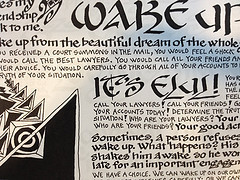 es my
endship WAKE UP
k to me.
e up from the beautiful dream of the whole
OU RECEIVED A COURT SUMMONS IN THE MAIL, YOU WOULD FEEL A SHOCK
OULD CALL THE BEST LAWYERS. YOU WOULD CALL ALL YOUR FRIENDS A
HEIR ADVICE. YOU WOULD CAREFULLY GO THROUGH ALL OF YOUR ACCOUNTS TO
RUTH OF YOUR SITUATION.
IT'S ELUL!
CALL YOUR LAWYERS! CALL YOUR FRIENDS! G
YOUR ACCOUNTS TODAY! DETERMINE THE TRUT
SITUATION! WHO ARE YOUR LAWYERS? YOUR
WHO ARE YOUR FRIENDS? Your good de
Sometimes, a person refuses
wake up. What happens? His
shakes him awake so he won
late for an important engagem
WE HAVE A CHOICE. WE CAN WAKE UP ON OUR OWN